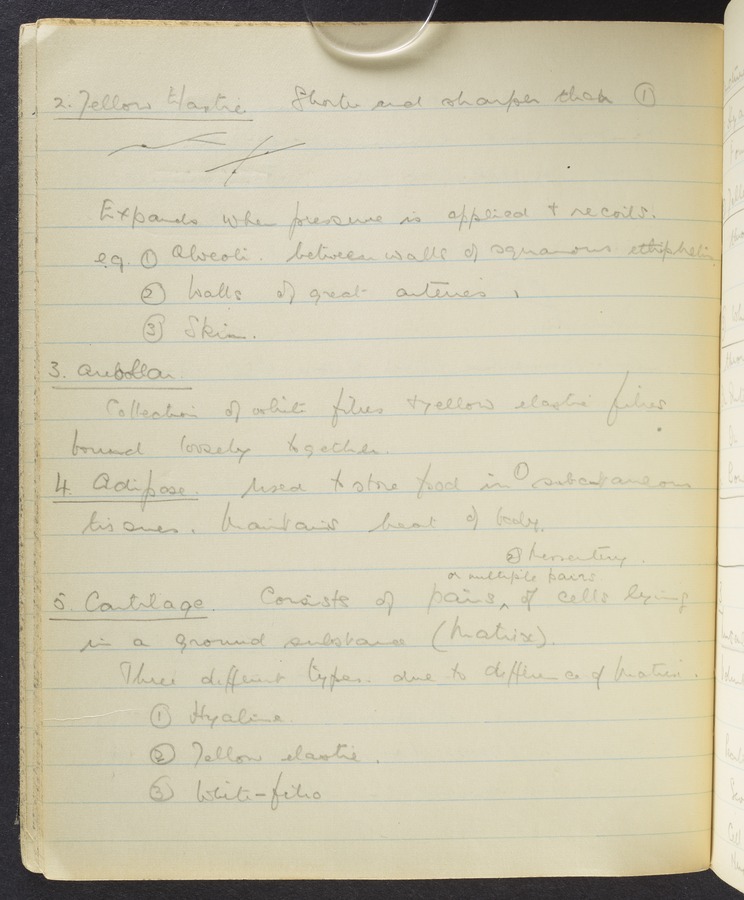 2. Yellow Elastic Shorter and sharper than ①
Expands when pressure is applied + recoils.
eg. ① Alveoli. between walls of squamous
② Walls of great arteries,
③ Skin.
3. Areolar.
Collection of white fibres + yellow elastic fibres
bound loosely together.
4. Adipose. Used to store food in ① subcutaneous
tissues. Maintains heat of body.
② Mesentery.
or multiple pairs
5. Cartilage. Consists of pairs ‸ of cells lying
in a ground substance (Matrix).
Three different types. due to difference of Matrix.
① Hyaline.
② Yellow elastic.
③ White-fibro